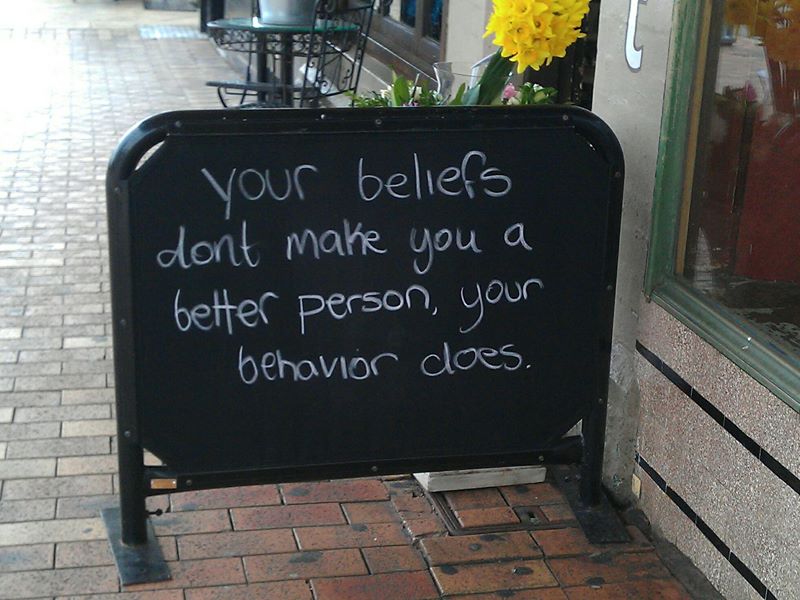 your beliefs
dont make you a
better person, your
behavior does.
t